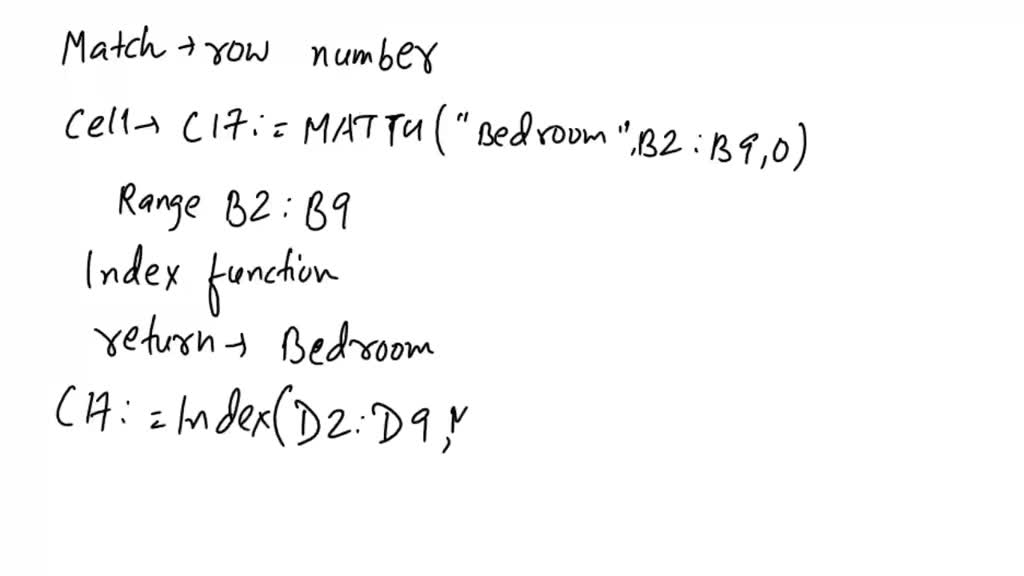 Match → row number
Cell → C17: = MATTH("Bedroom",B2:B9,0)
Range B2:B9
Index function
return → Bedroom
C17: = Index(D2:D9,